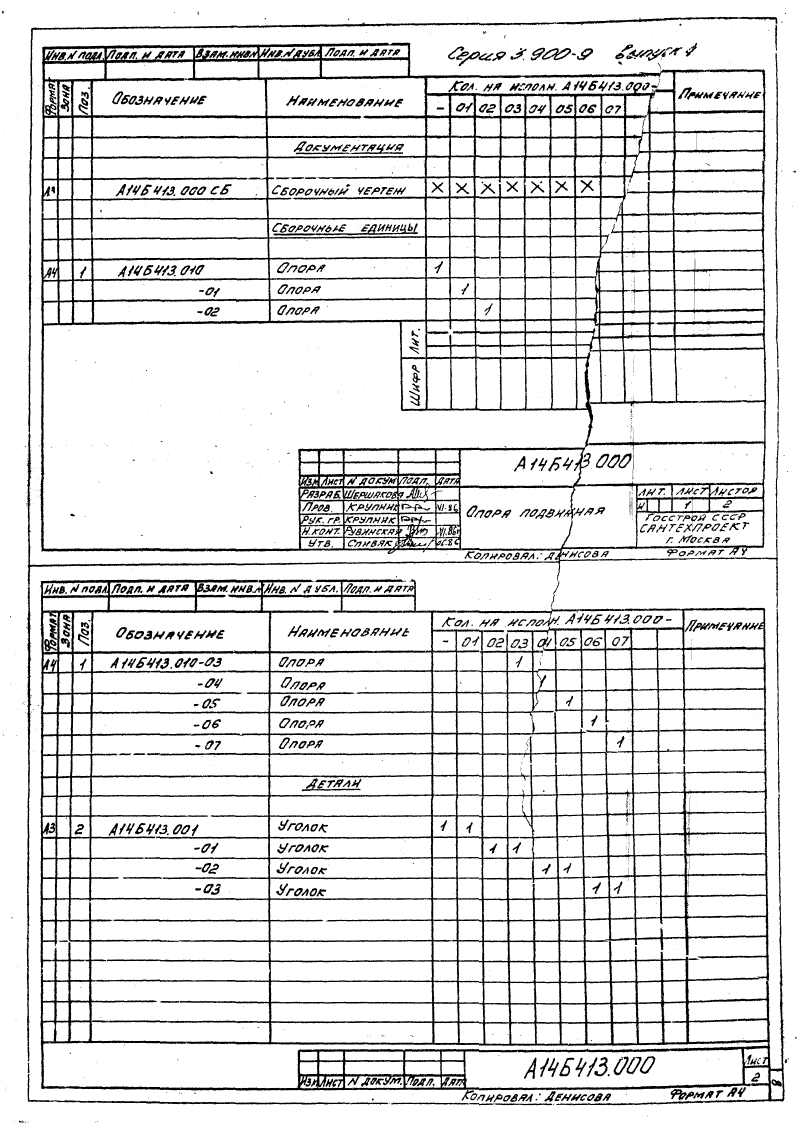 Серия 3.900-9 Выпуск 1
Инв.N подл. Подп. и дата Взам. инв.N Инв.N дубл. Подп. и дата
Формат Зона Поз. Обозначение Наименование Кол. на исполн. А14Б413.000- Примечание
- 01 02 03 04 05 06 07
Документация
А3 А14Б413.000 СБ Сборочный чертеж X X X X X X X
Сборочные единицы
А4 1 А14Б413.010 Опора 1
-01 Опора 1
-02 Опора 1
Лит.
Шифр
А14Б413.000
Изм. Лист N докум. Подп. Дата
Разраб. Шершакова
Пров. Крупник VI.86
Рук. гр. Крупник
Н.конт. Рувинская VI.86г
Утв. Спивак 06.86
Опора подвижная
Лит. Лист Листов
И 1 2
Госстрой СССР
САНТЕХПРОЕКТ
г. Москва
Копировал: Денисова Формат А4
Инв. N подл. Подп. и дата Взам. инв.N Инв. N дубл. Подп. и дата
Формат Зона Поз. Обозначение Наименование Кол. на исполн. А14Б413.000- Примечание
- 01 02 03 04 05 06 07
А4 1 А14Б413.010-03 Опора 1
-04 Опора 1
-05 Опора 1
-06 Опора 1
-07 Опора 1
Детали
А3 2 А14Б413.001 Уголок 1 1
-01 Уголок 1 1
-02 Уголок 1 1
-03 Уголок 1 1
А14Б413.000
Лист
2
Изм. Лист N докум. Подп. Дата
Копировал: Денисова Формат А4
8